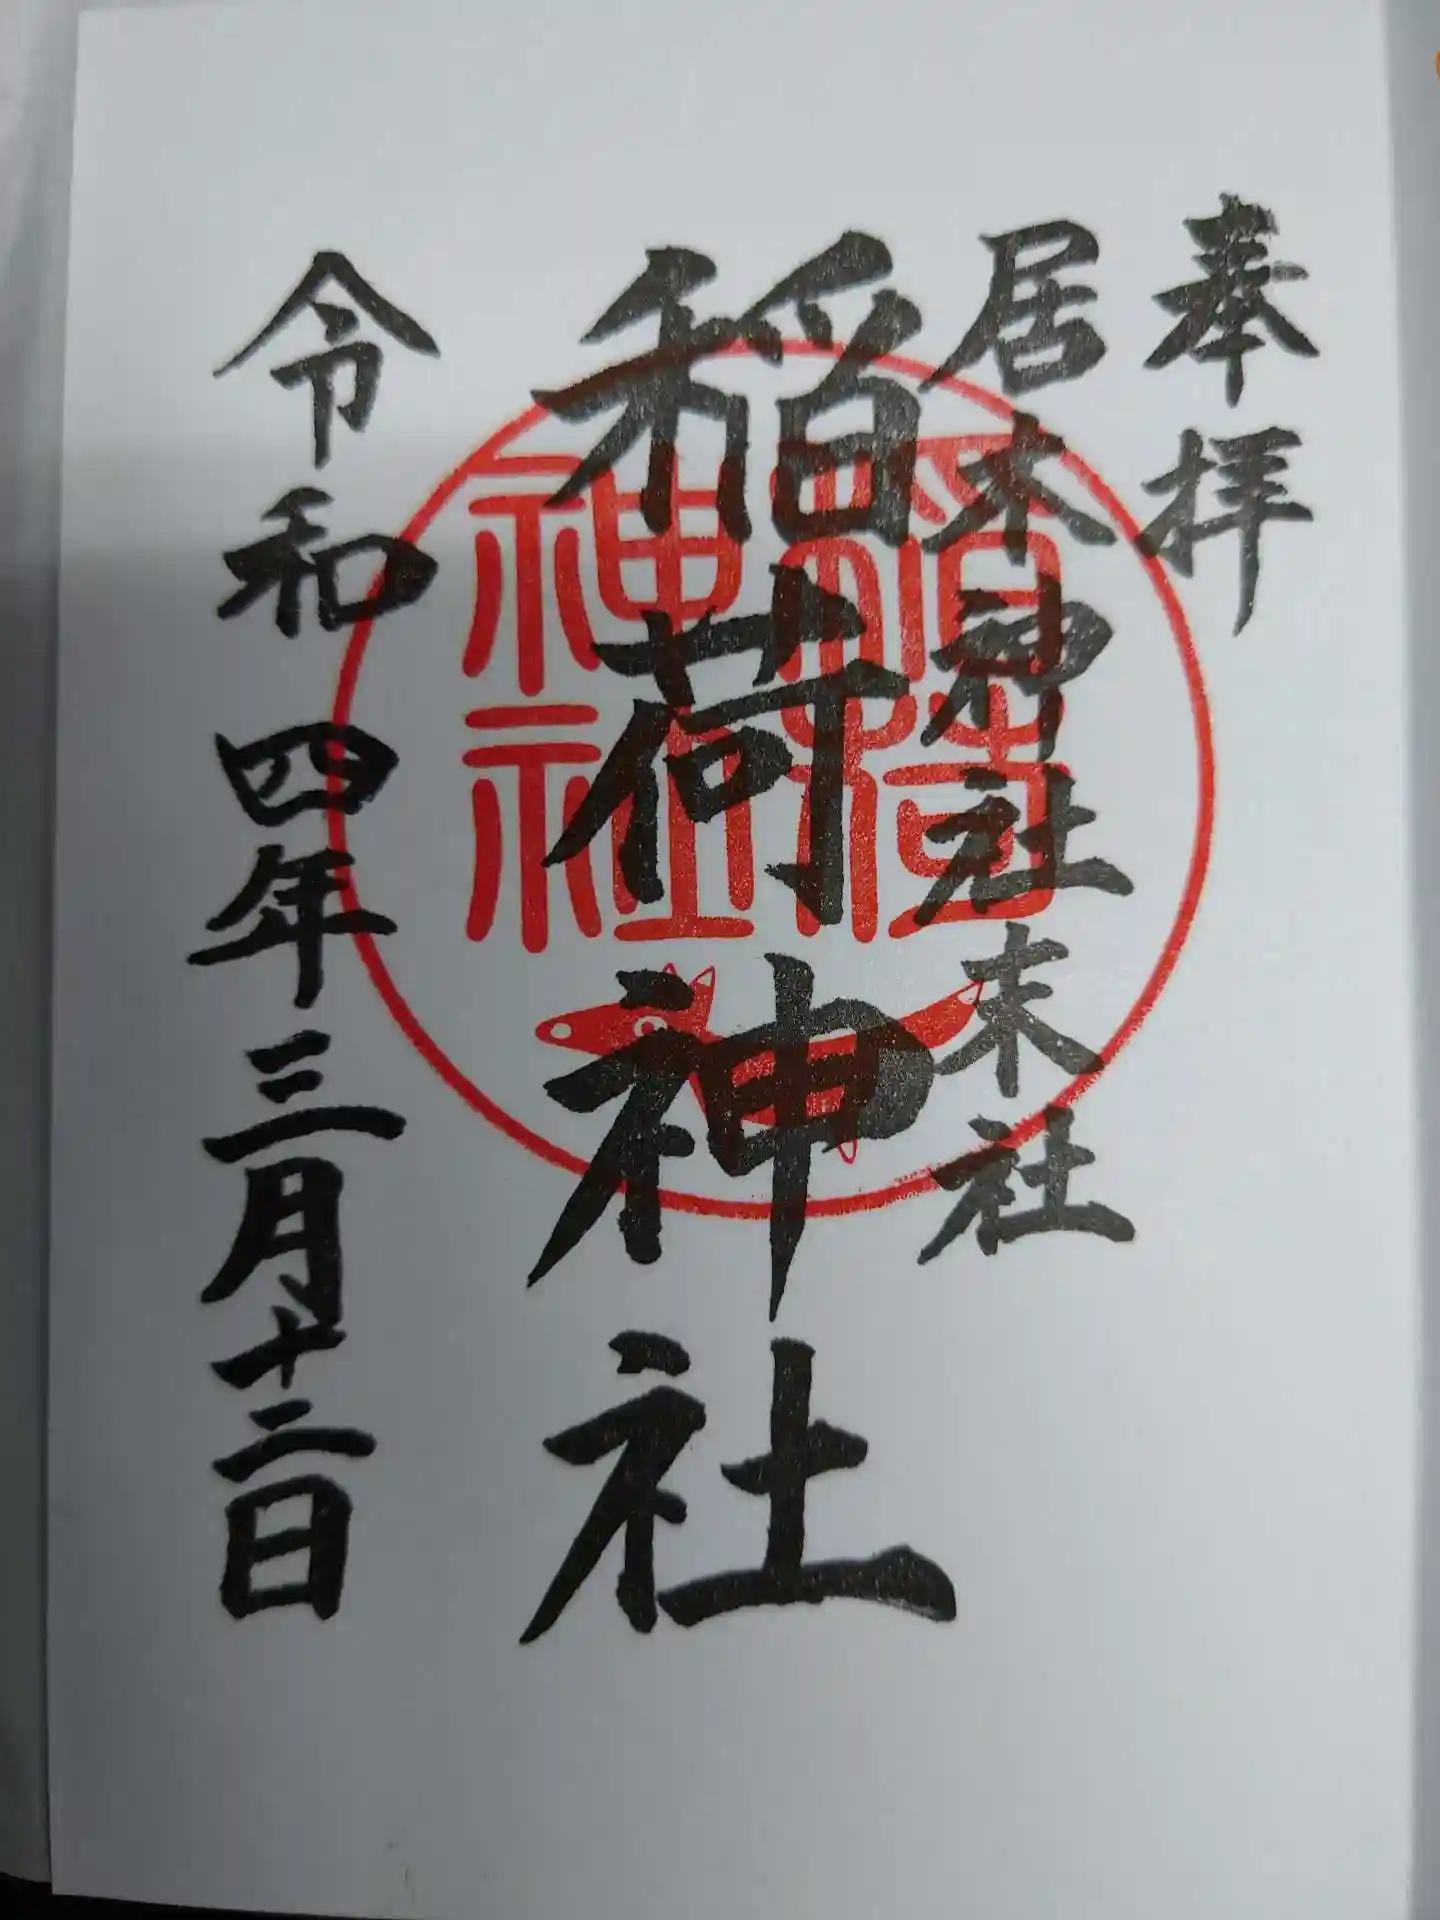 奉拝
居木神社末社
稲荷神社
稲荷
神社
令和四年三月十二日